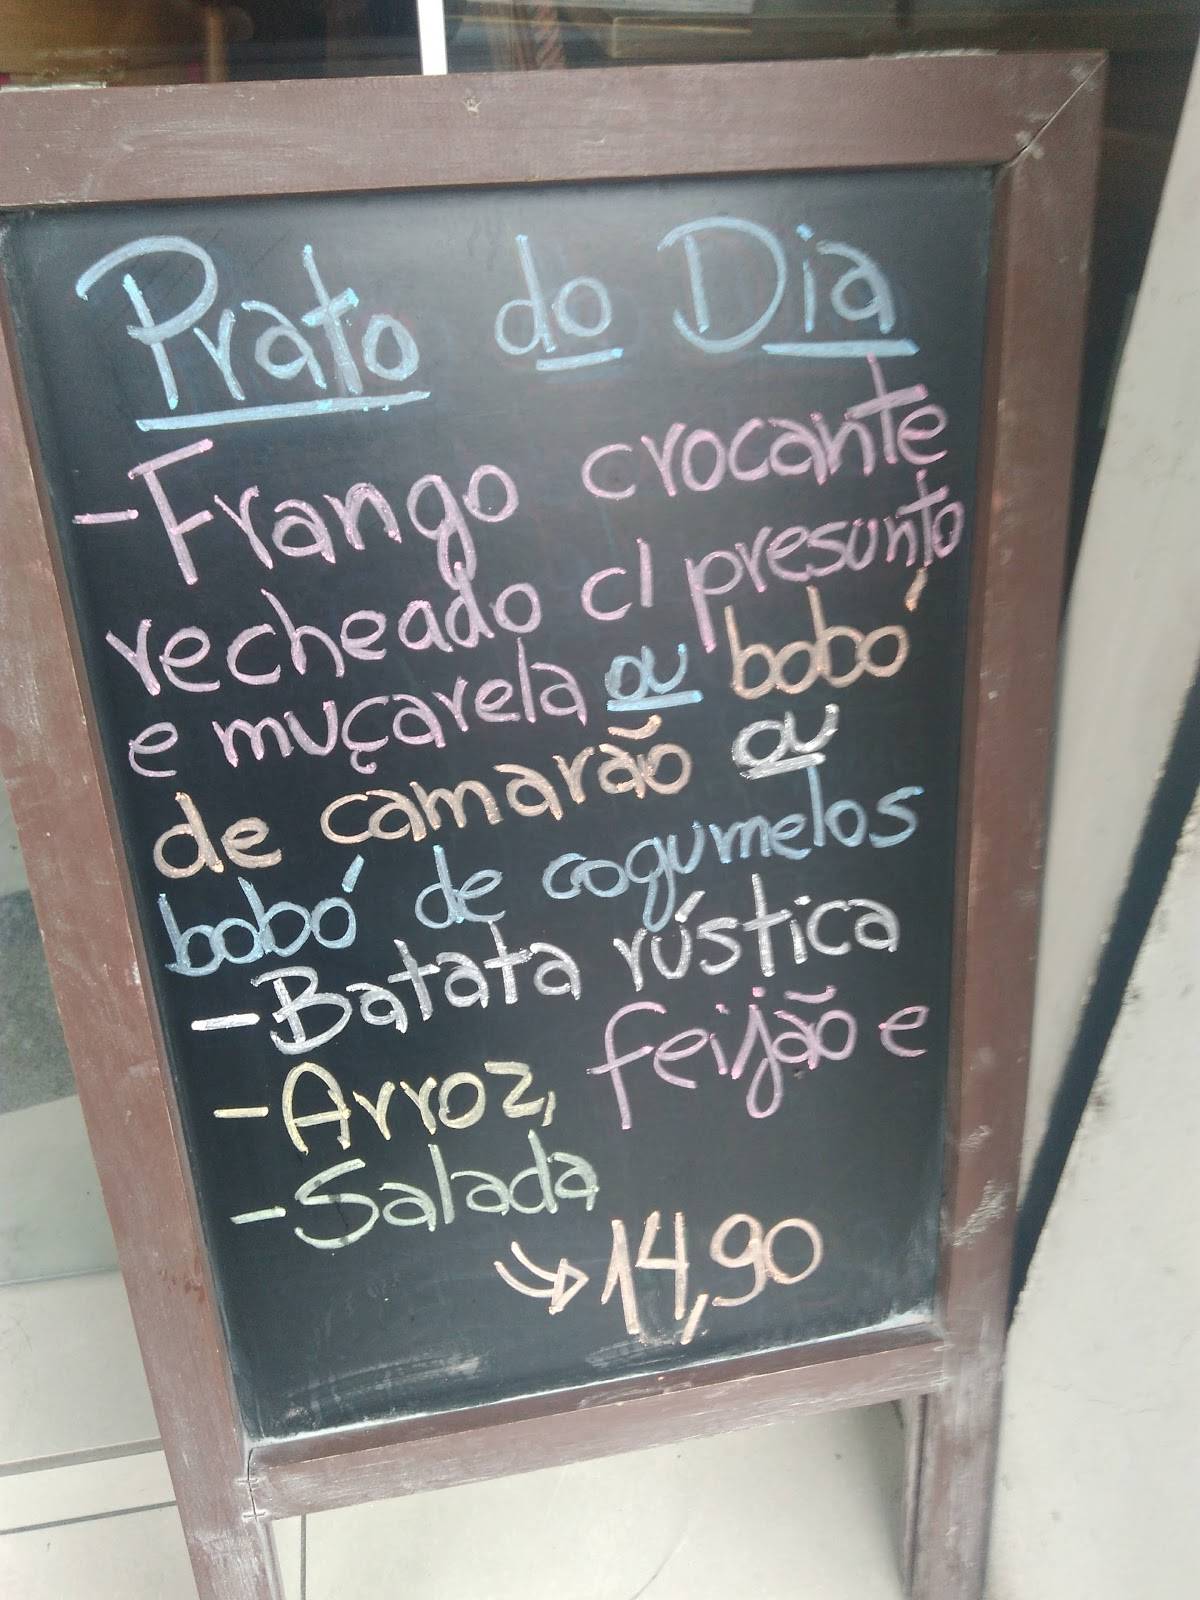 Prato do Dia
-Frango crocante
recheado c/ presunto
e muçarela ou bobó
de camarão ou
bobó de cogumelos
-Batata rústica
-Arroz, feijão e
-Salada
→14,90